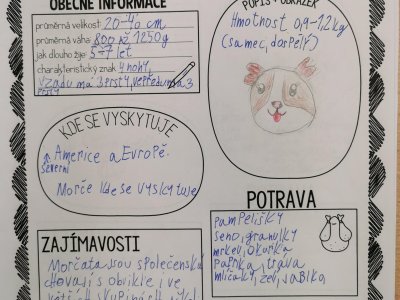 OBECNÉ INFORMACE
průměrná velikost: 20-40 cm
průměrná váha: 800 až 1250g
jak dlouho žije: 5-7 let
charakteristický znak: 4 nohy,
vzadu má 3 prsty, vepředu má 3
prsty
POPIS + OBRÁZEK
Hmotnost 0,9-1,2 kg
(samec, dospělý)
KDE SE VYSKYTUJE
Americe a Evropě.
severní
Morče kde se vyskytuje
POTRAVA
pampelišky
seno, granulky
mrkev, okurka
paprika, trava
mlíčák, zelí, jablka
ZAJÍMAVOSTI
Morčata jsou společensk
chovají s obvikle i ve